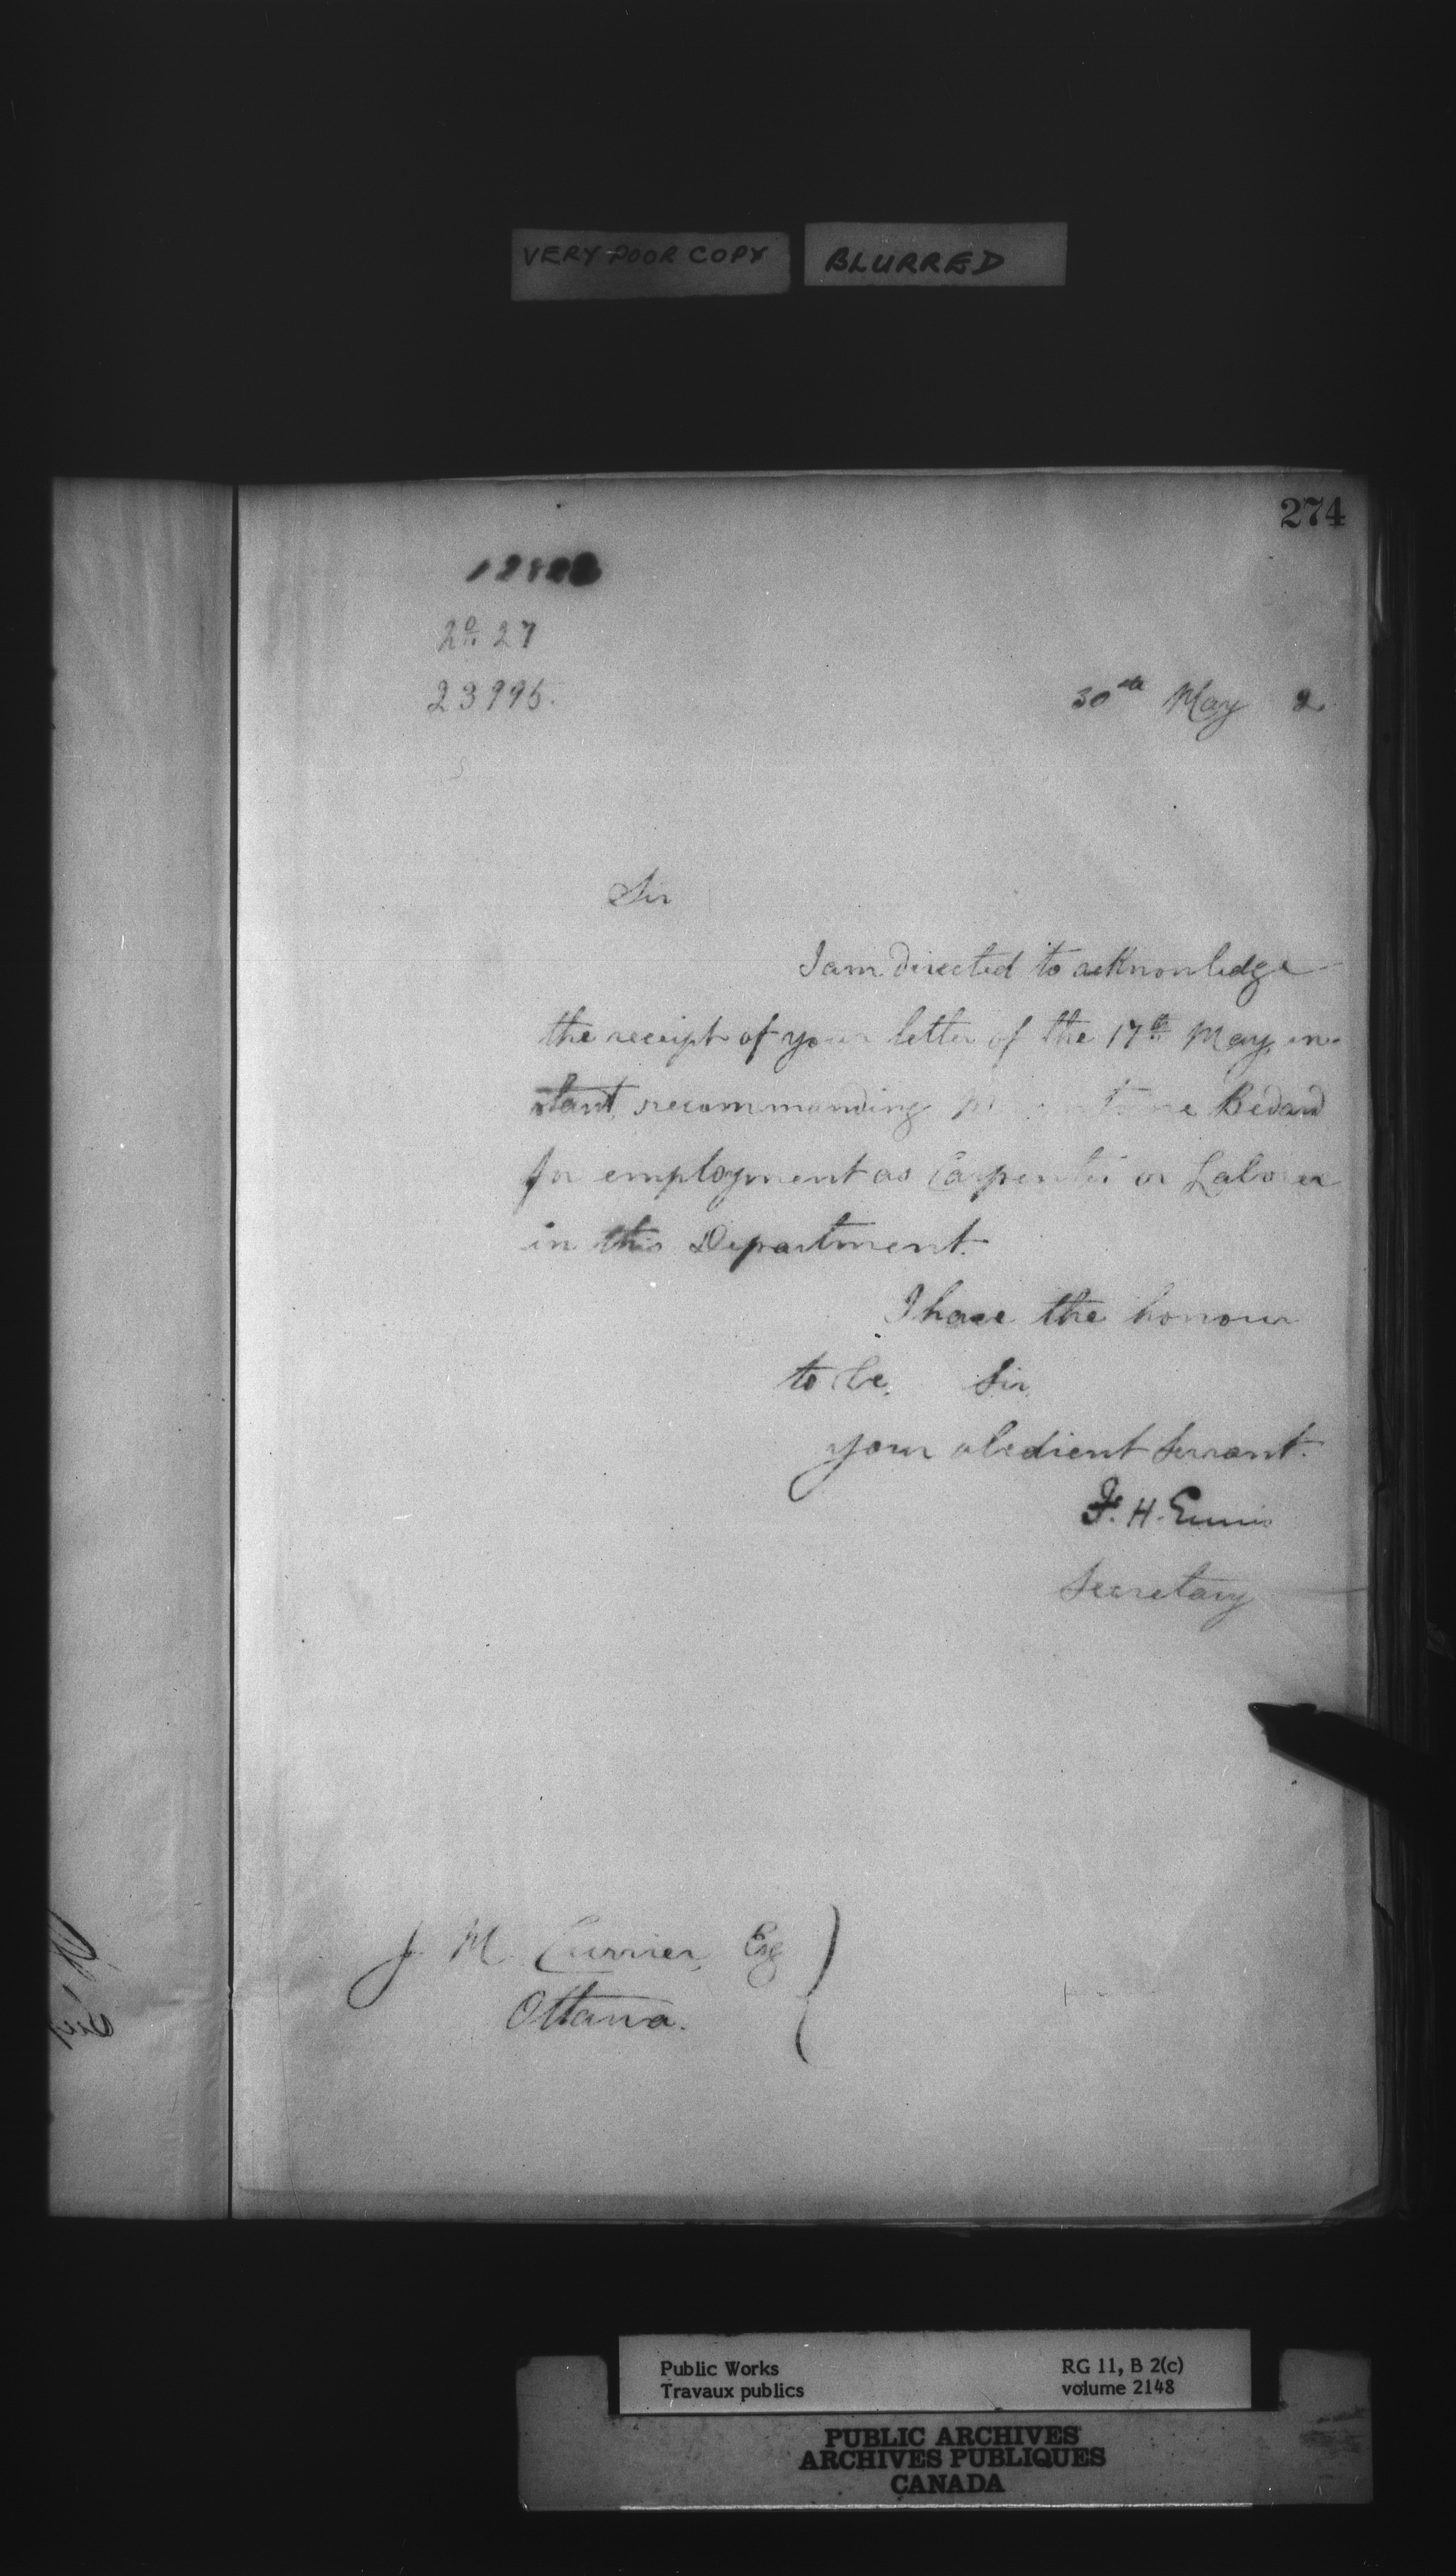 VERY POOR COPY BLURRED
274
No. 27
23995.
30th May 2
Sir
I am directed to acknowledge
the receipt of your letter of the 17th May, in-
stant, recommanding Bedard
for employment as Carpenter or Laborer
in this Department.
I have the honour
to be, Sir
your obedient Servant.
F. H. Ennis
Secretary
J M Currier, Esq
Ottawa.
Public Works RG 11, B 2(c)
Travaux publics volume 2148
PUBLIC ARCHIVES
ARCHIVES PUBLIQUES
CANADA